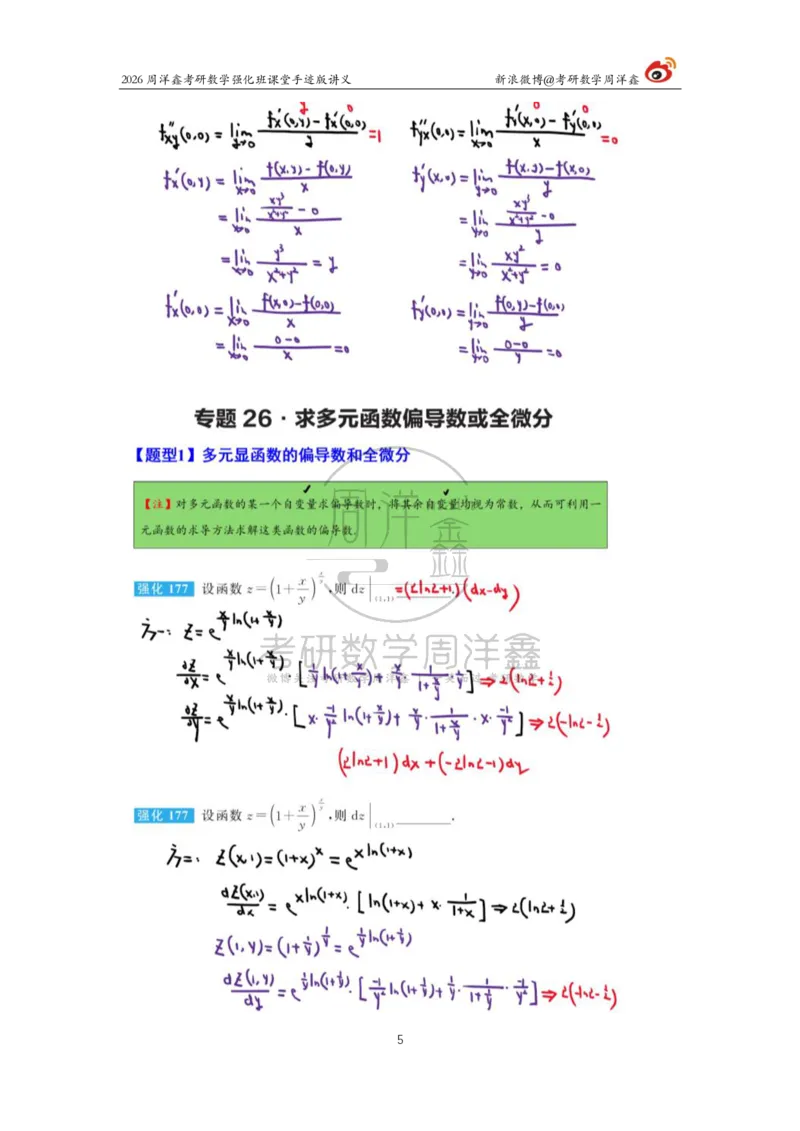 2026 周洋鑫考研数学强化班课堂手迹版讲义 新浪微博@考研数学周洋鑫
f''xy(0,0) = lim y→0 (f'x(0,y) - f'x(0,0))/y = 1
y 0
f''yx(0,0) = lim x→0 (f'y(x,0) - f'y(0,0))/x = 0
0 0
f'x(0,y) = lim x→0 (f(x,y) - f(0,y))/x
= lim x→0 (xy³/(x²+y²) - 0)/x
= lim x→0 y³/(x²+y²) = y
f'x(0,0) = lim x→0 (f(x,0) - f(0,0))/x
= lim x→0 (0-0)/x = 0
f'y(x,0) = lim y→0 (f(x,y) - f(x,0))/y
= lim y→0 (xy³/(x²+y²) - 0)/y
= lim y→0 xy²/(x²+y²) = 0
f'y(0,0) = lim y→0 (f(0,y) - f(0,0))/y
= lim y→0 (0-0)/y = 0
专题 26 · 求多元函数偏导数或全微分
【题型1】多元显函数的偏导数和全微分
【注】对多元函数的某一个自变量求偏导数时，将其余自变量均视为常数，从而可利用一
元函数的求导方法求解这类函数的偏导数.
强化 177 设函数 z = (1 + x/y)^(x/y), 则 dz|(1,1) = (2ln2+1)(dx-dy)
方一: z = e^(x/y ln(1+x/y))
∂z/∂x = e^(x/y ln(1+x/y)) · [1/y ln(1+x/y) + x/y · 1/(1+x/y) · 1/y] ⇒ 2(ln2+1/2)
∂z/∂y = e^(x/y ln(1+x/y)) · [x · -1/y² ln(1+x/y) + x/y · 1/(1+x/y) · x · -1/y²] ⇒ 2(-ln2-1/2)
(2ln2+1)dx + (-2ln2-1)dy
强化 177 设函数 z = (1 + x/y)^(x/y), 则 dz|(1,1) ________ .
方二: z(x,1) = (1+x)^x = e^(x ln(1+x))
dz(x,1)/dx = e^(x ln(1+x)) · [ln(1+x) + x · 1/(1+x)] ⇒ 2(ln2+1/2)
z(1,y) = (1+1/y)^(1/y) = e^(1/y ln(1+1/y))
dz(1,y)/dy = e^(1/y ln(1+1/y)) · [-1/y² ln(1+1/y) + 1/y · 1/(1+1/y) · -1/y²] ⇒ 2(-ln2-1/2)
周洋鑫
考研数学周洋鑫
5